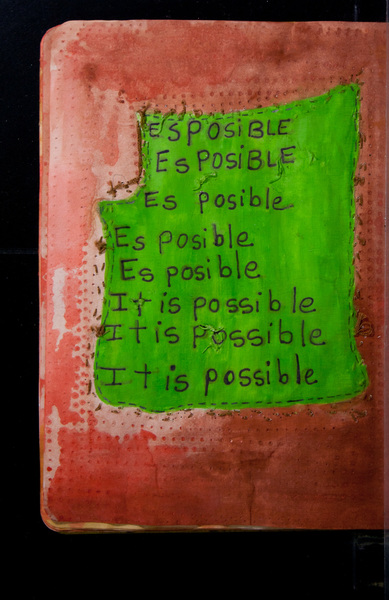 ESPOSiBLE
ES POSiBLE
Es posible
Es posible
Es posible
It is possible
It is possible
It is possible